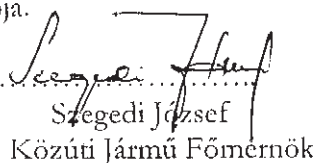 ója.
Szegedi József
Szegedi József
Közúti Jármű Főmérnök